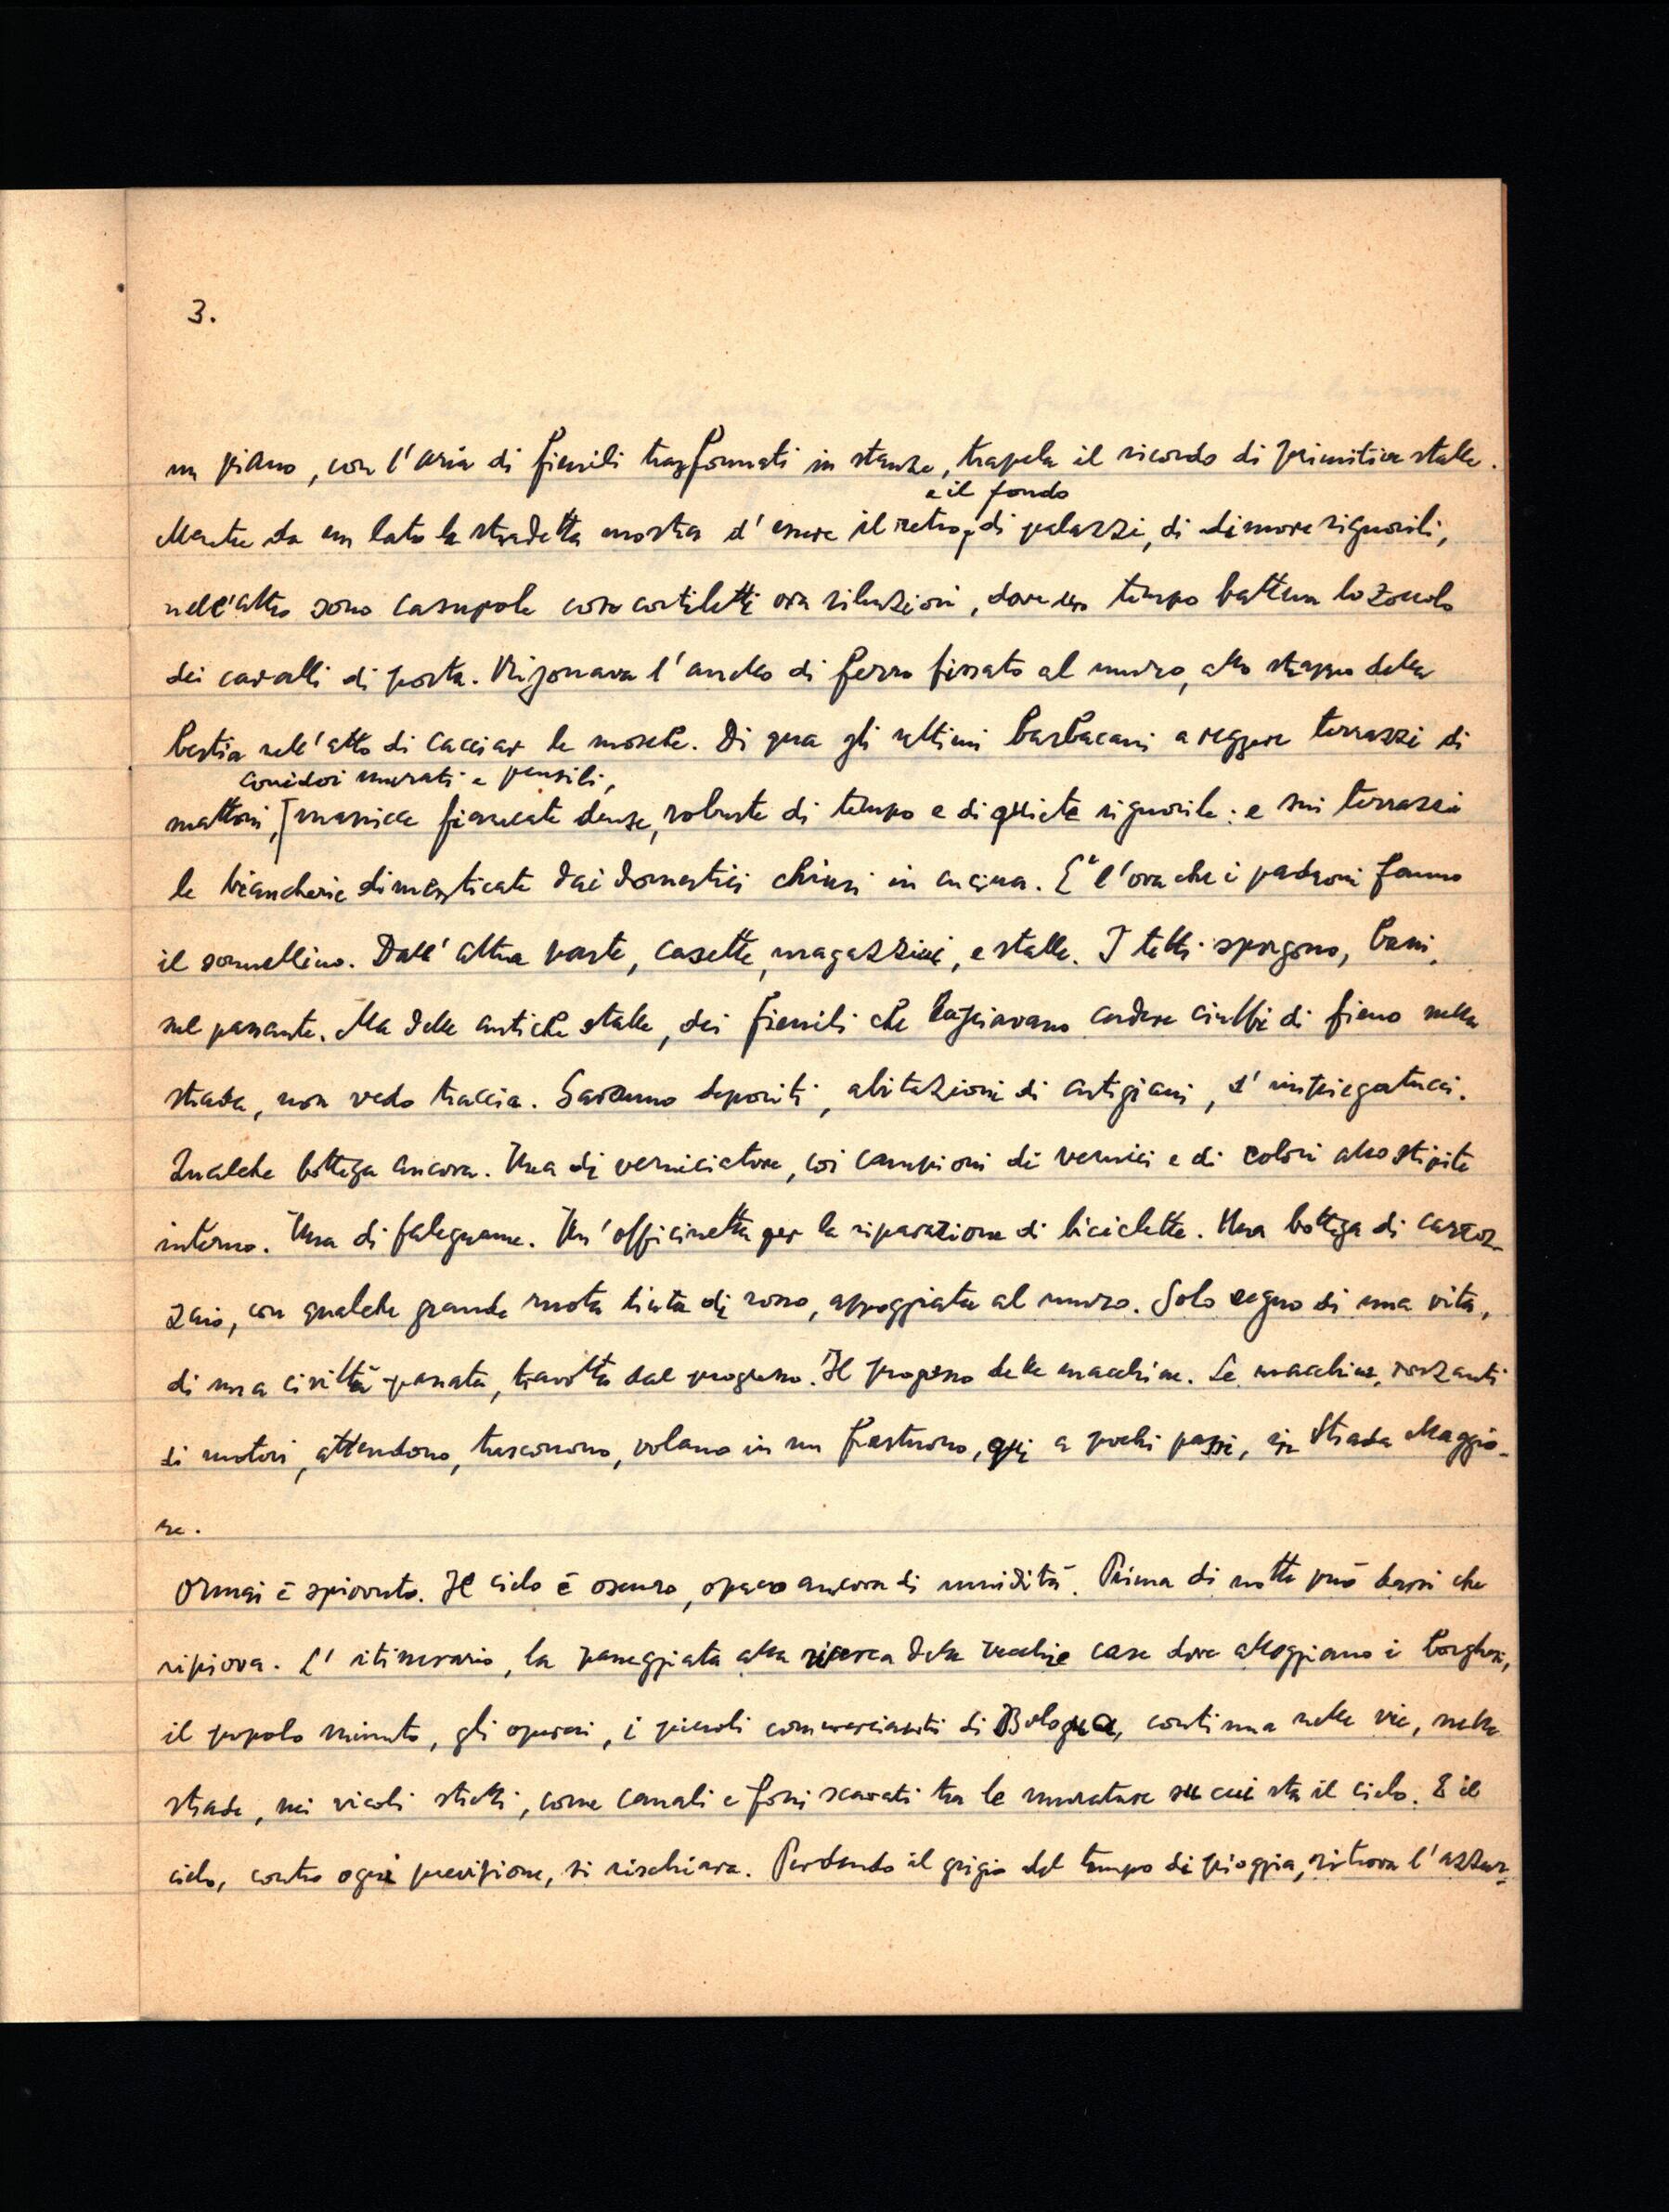 3.
un piano, con l'aria di fienili trasformati in stanze, trapela il ricordo di primitive stalle.
e il fondo
Mentre da un lato la stradetta mostra d'essere il retro, di palazzi, di dimore signorili,
nell'altro sono casupole con cortiletti ora silenziosi, dove un tempo batteva lo zoccolo
dei cavalli di posta. Risonava l'anello di ferro fissato al muro, allo strappo della
bestia nell'atto di cacciar le mosche. Di qua gli ultimi barbacani a reggere terrazzi di
corridoi murati e pensili,
mattoni, massicce fiancate dense, robuste di tempo e di quiete signorile: e sui terrazzi
le biancherie dimenticate dai domestici chiusi in cucina. È l'ora che i padroni fanno
il sonnellino. Dall'altra parte, casette, magazzini, e stalle. I tetti sporgono, bassi,
sul passante. Ma delle antiche stalle, dei fienili che lasciavano cadere ciuffi di fieno nella
strada, non vedo traccia. Saranno depositi, abitazioni di artigiani, d'impiegatucci.
Qualche bottega ancora. Una di verniciatore, coi campioni di vernici e di colori allo stipite
interno. Una di falegname. Un'officinetta per la riparazione di biciclette. Una bottega di carroz-
zaio, con qualche grande ruota tinta di rosso, appoggiata al muro. Solo segno di una vita,
di una civiltà passata, travolta dal progresso. Il progresso delle macchine. Le macchine, ronzanti
di motori, attendono, trascorrono, volano in un frastuono, qui a pochi passi, in Strada Maggio-
re.
Ormai è spiovuto. Il cielo è oscuro, opaco ancora di umidità. Prima di notte può darsi che
ripiova. L'itinerario, la passeggiata alla ricerca delle vecchie case dove alloggiano i borghesi,
il popolo minuto, gli operai, i piccoli commercianti di Bologna, continua nelle vie, nelle
strade, nei vicoli stretti, come canali e fossi scavati tra le murature su cui sta il cielo. E il
cielo, contro ogni previsione, si rischiara. Perdendo il grigio del tempo di pioggia, ritrova l'azzur-